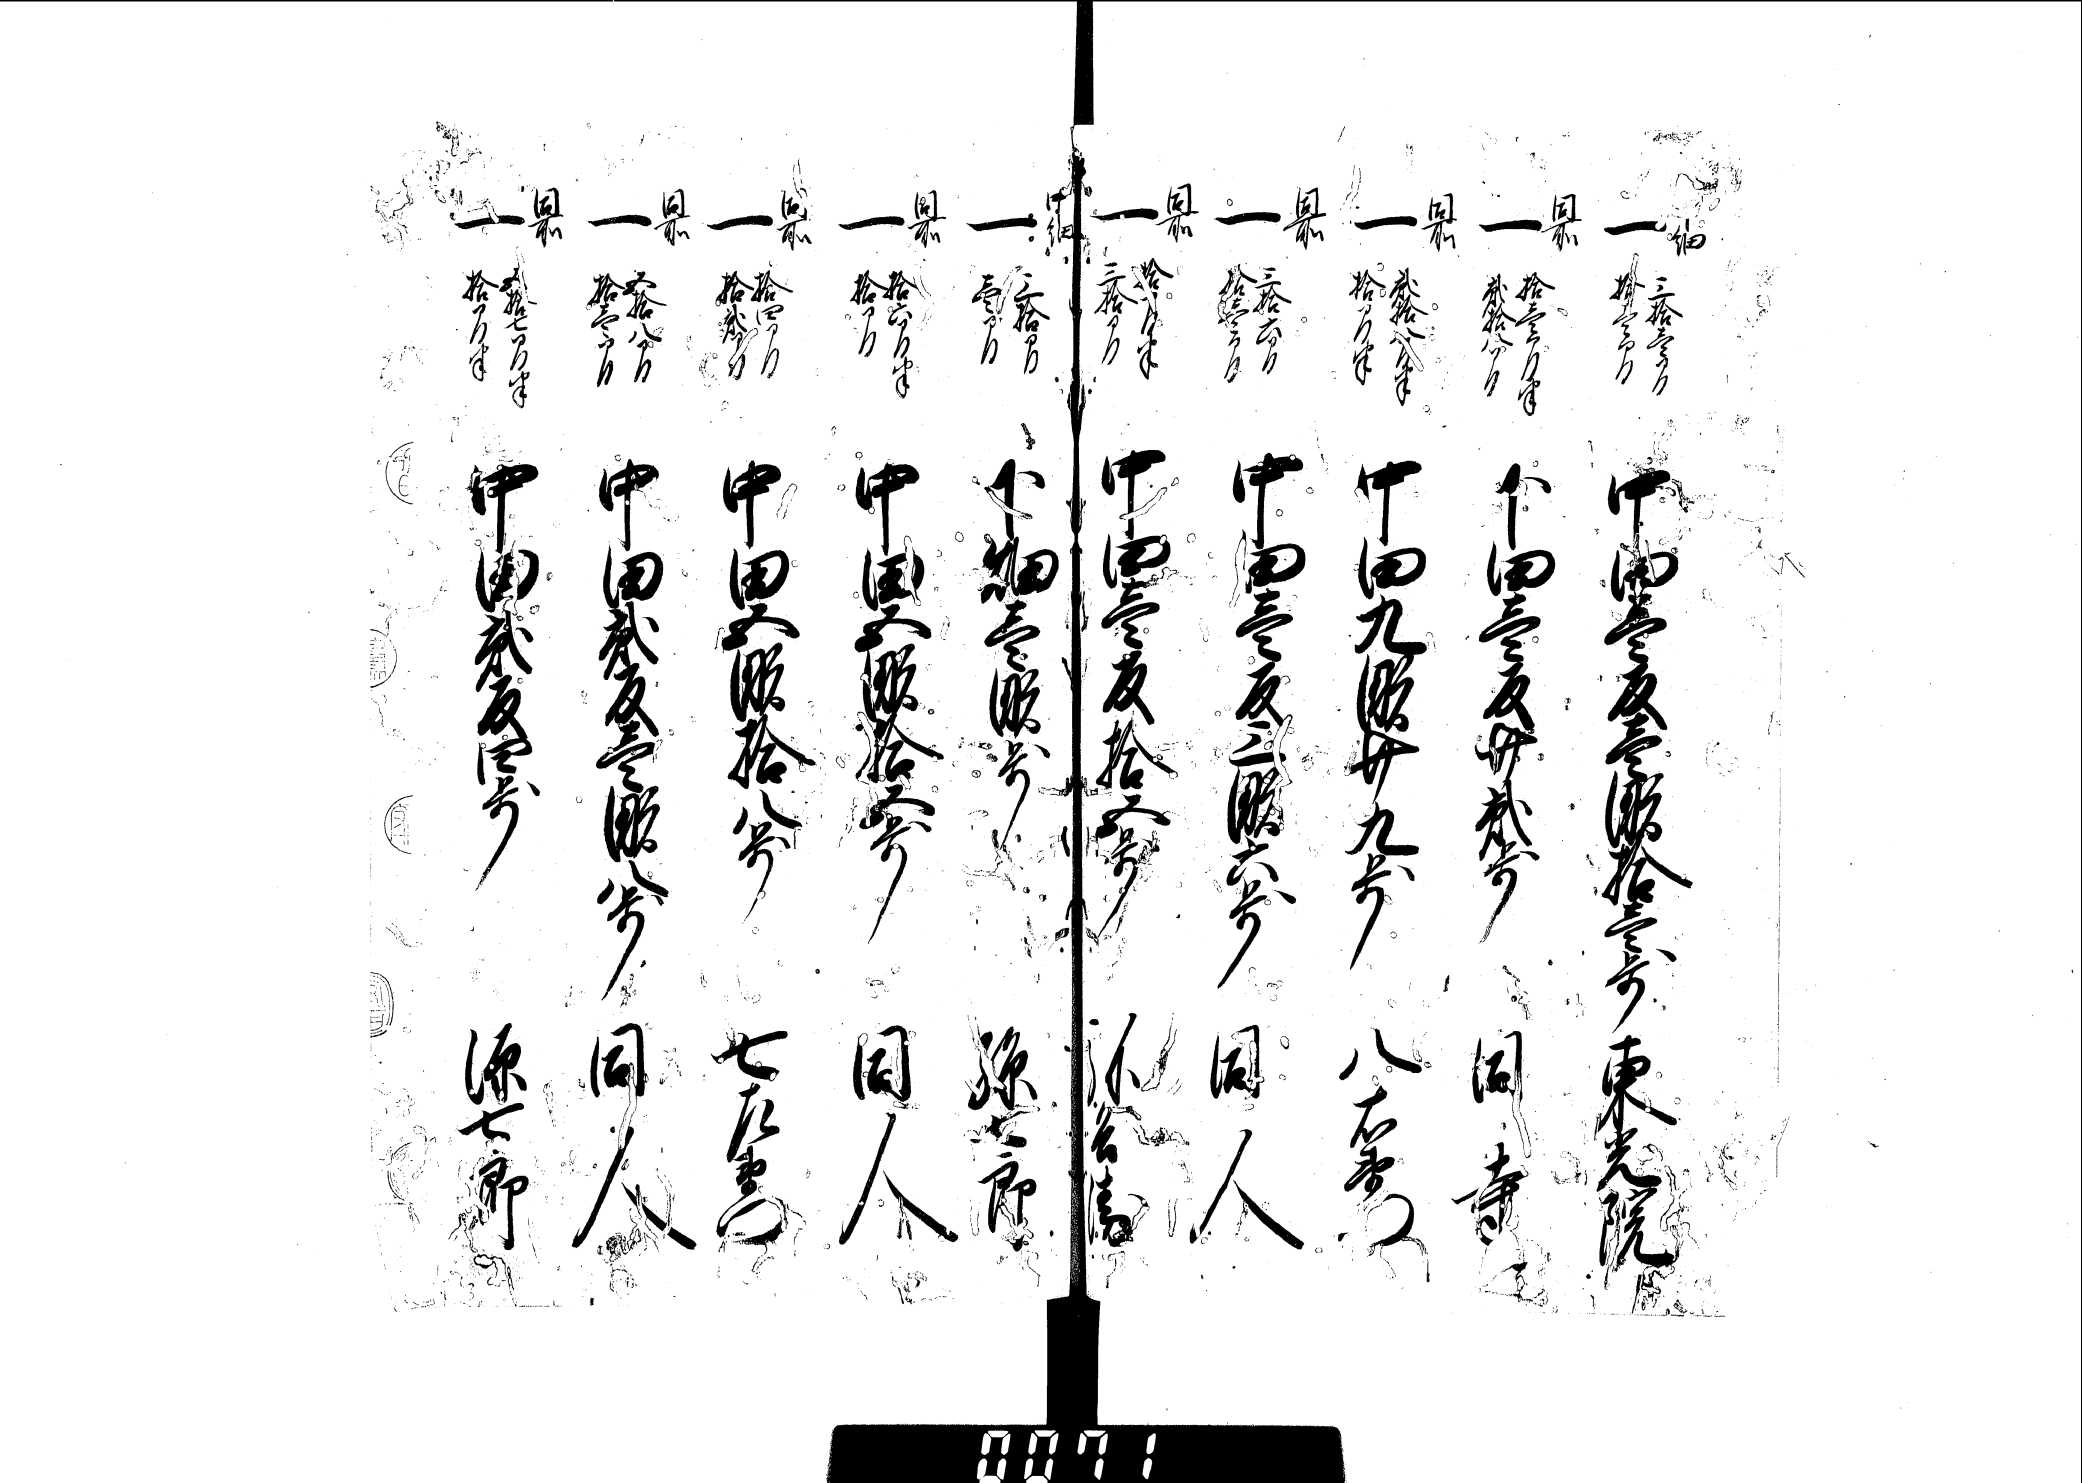 畑
一 三拾壱間 拾壱間 中田壱反壱畝拾壱歩 東光院
同所
一 拾壱間半 弐拾八間 下田壱反廿弐歩 同寺
同所
一 弐拾八間半 拾間半 中田九畝廿九歩 八右衛門
同所
一 三拾六間 拾壱間 中田壱反三畝六歩 同人
同所
一 三拾間 中田壱反拾五歩
畑
一 三拾間 壱間 下畑壱畝歩 孫七郎
同所
一 拾六間半 拾間 中田五畝拾五歩 同人
同所
一 拾四間 拾弐間 中田五畝拾八歩 七左衛門
同所
一 五拾八間 拾壱間 中田弐反壱畝八歩 同人
同所
一 五拾七間半 拾間半 中田弐反四歩 源七郎
0071